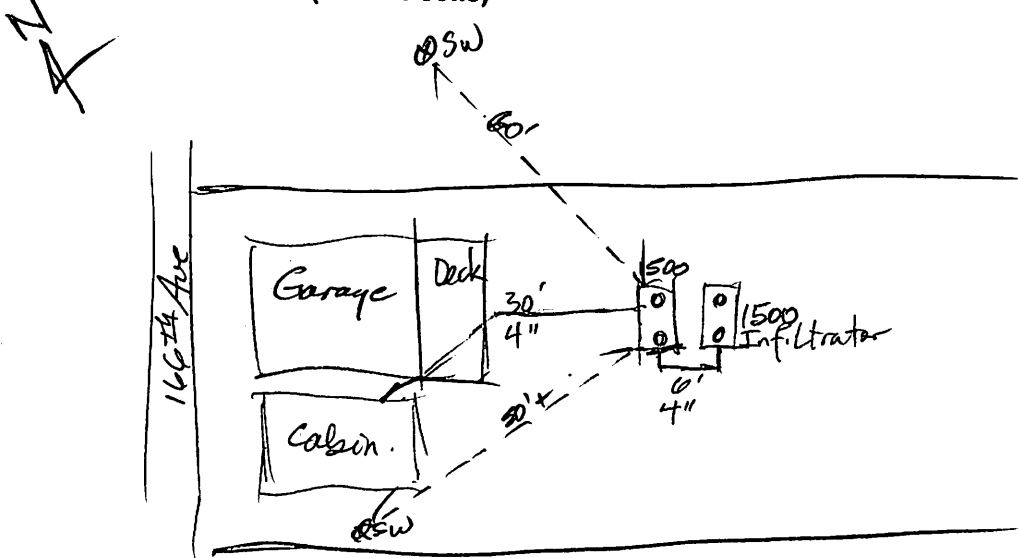 N
SW
60'
166th Ave
Garage
Deck
30'
4"
1500
1500
Infiltrator
6'
4"
50'+
Cabin.
SW